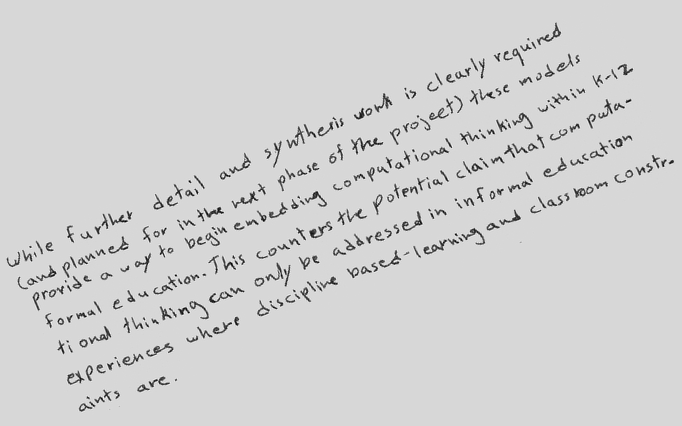 While further detail and synthesis work is clearly required
(and planned for in the next phase of the project) these models
provide a way to begin embedding computational thinking within K-12
formal education. This counters the potential claim that computa-
tional thinking can only be addressed in informal education
experiences where discipline based-learning and classroom constr-
aints are.